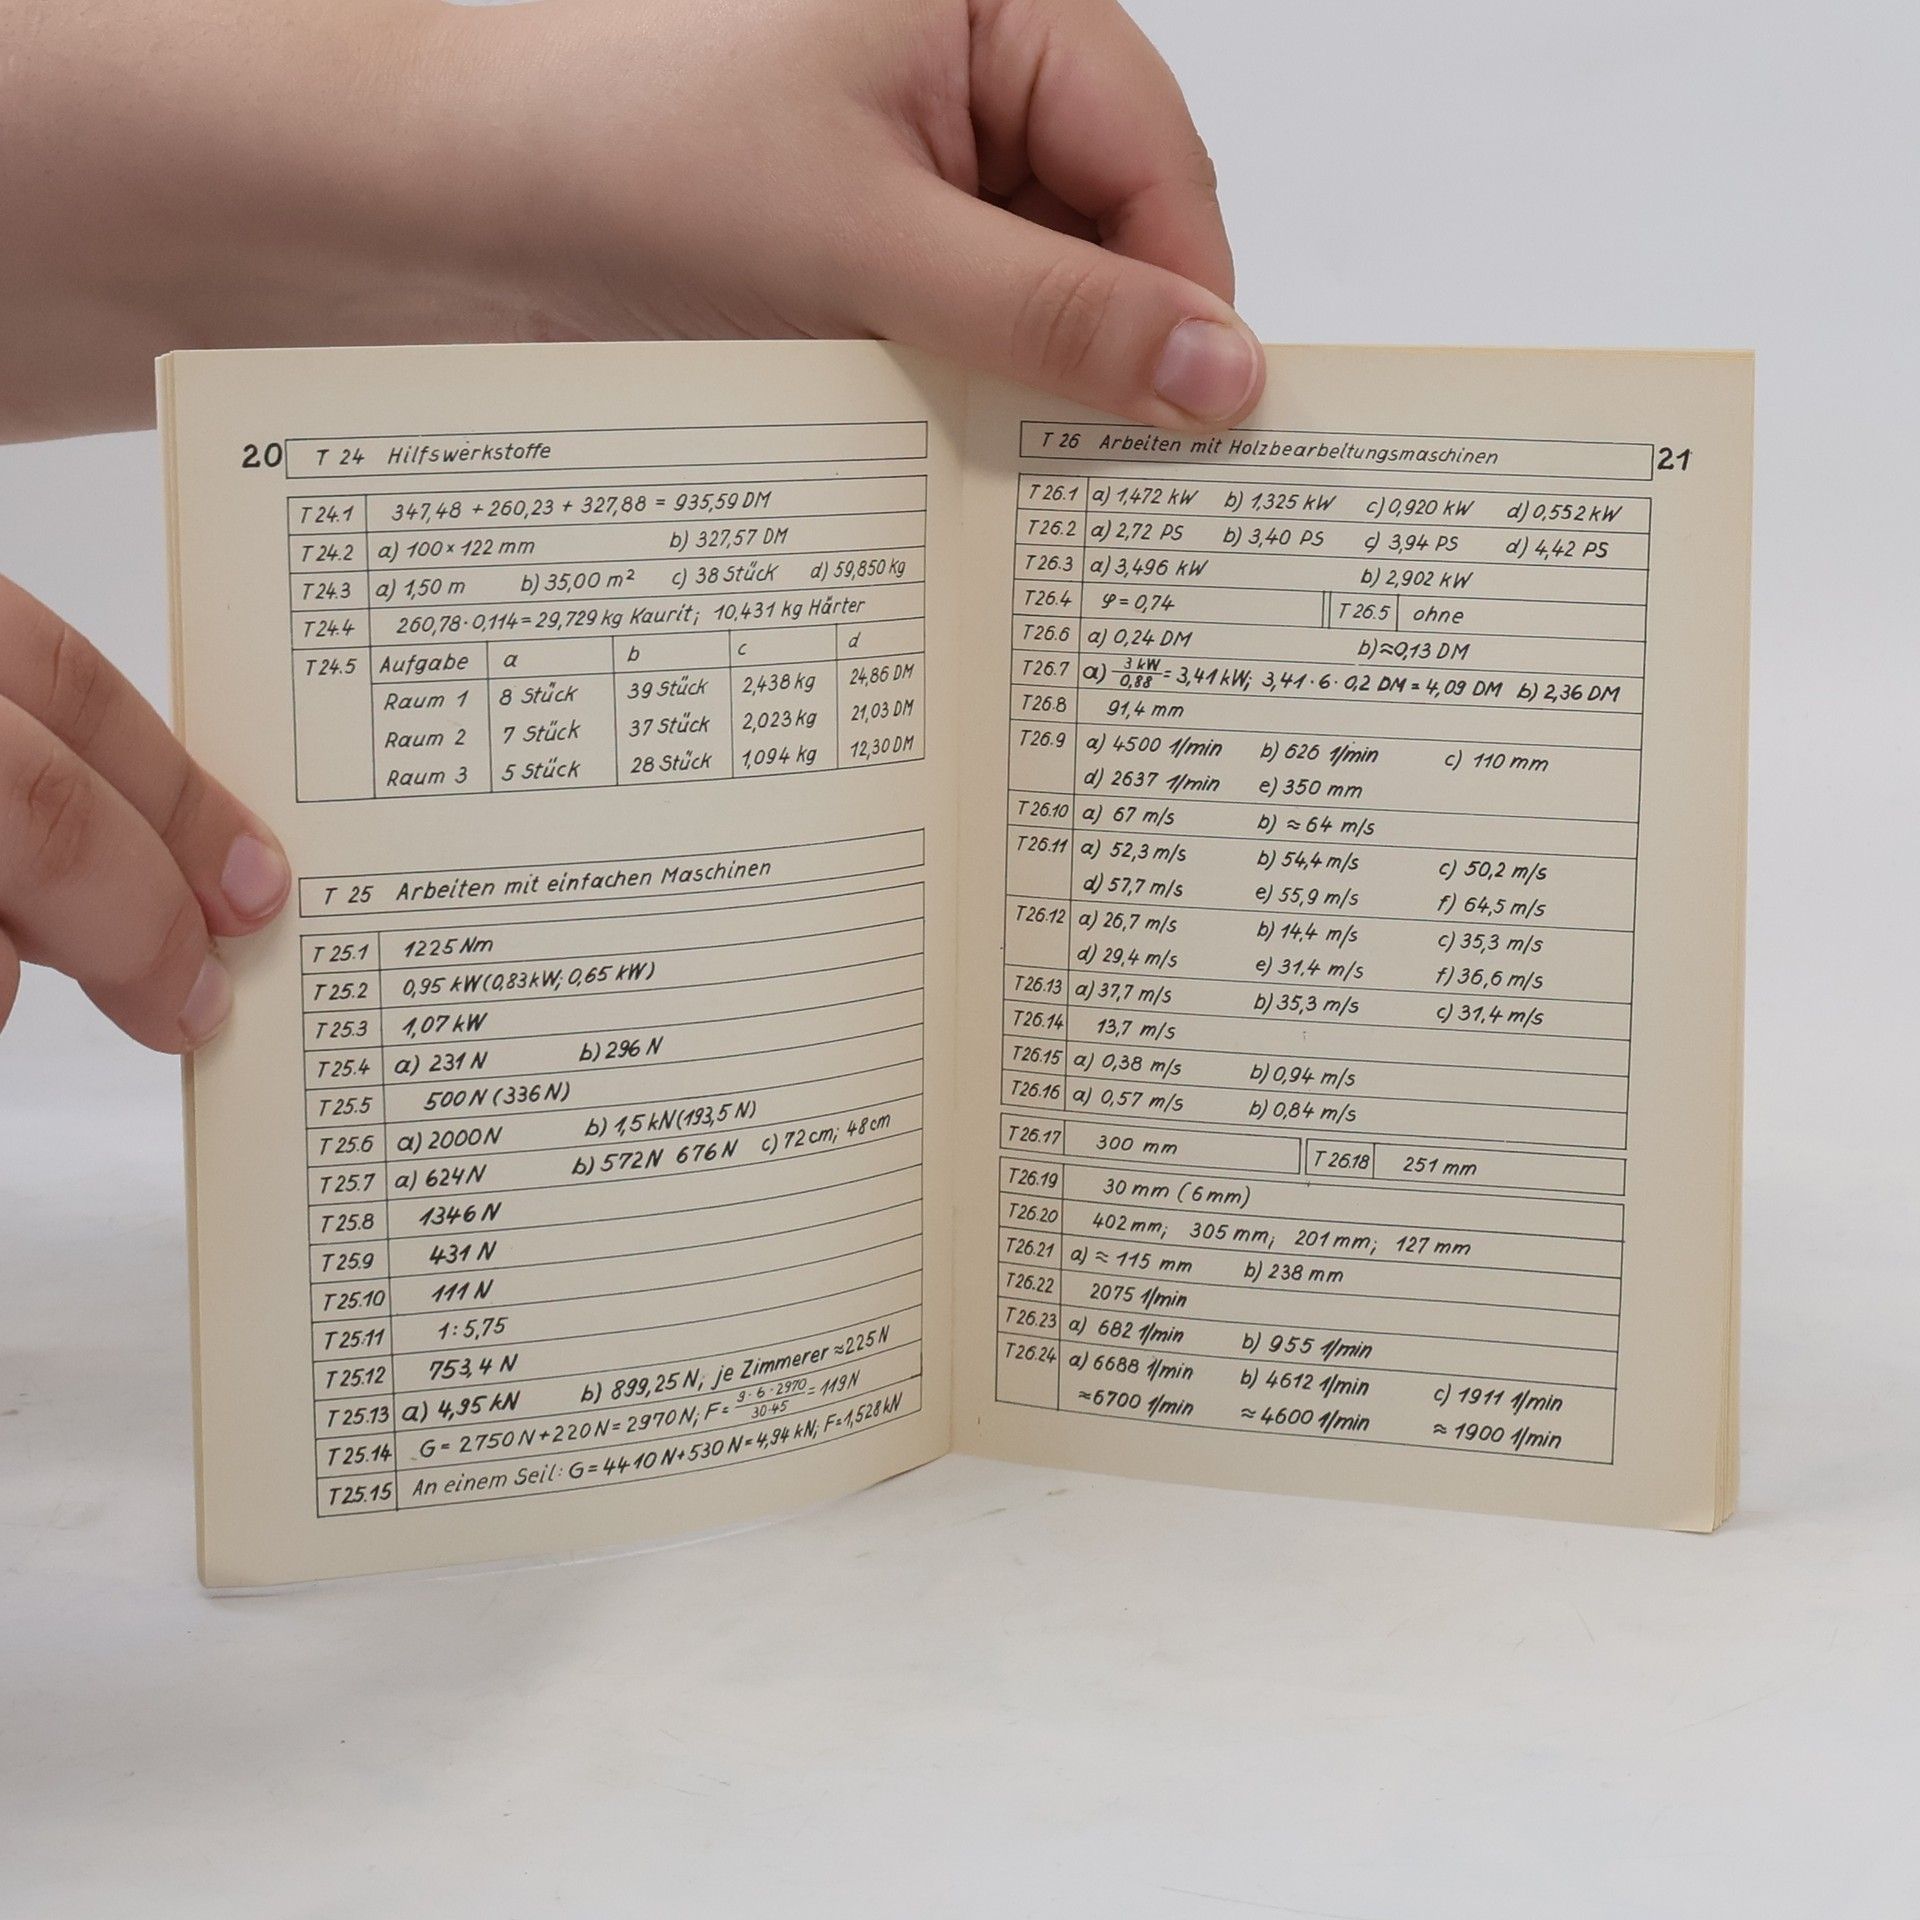 20
T 24 Hilfswerkstoffe
T24.1 347,48 + 260,23 + 327,88 = 935,59 DM
T24.2 a) 100 × 122 mm b) 327,57 DM
T24.3 a) 1,50 m b) 35,00 m² c) 38 Stück d) 59,850 kg
T24.4 260,78 · 0,114 = 29,729 kg Kaurit; 10,431 kg Härter
T24.5 Aufgabe a b c d
Raum 1 8 Stück 39 Stück 2,438 kg 24,86 DM
Raum 2 7 Stück 37 Stück 2,023 kg 21,03 DM
Raum 3 5 Stück 28 Stück 1,094 kg 12,30 DM
T 25 Arbeiten mit einfachen Maschinen
T 25.1 1225 Nm
T 25.2 0,95 kW (0,83 kW; 0,65 kW)
T 25.3 1,07 kW
T 25.4 a) 231 N b) 296 N
T 25.5 500 N (336 N)
T 25.6 a) 2000 N b) 1,5 kN (193,5 N)
T 25.7 a) 624 N b) 572 N 676 N c) 72 cm; 48 cm
T 25.8 1346 N
T 25.9 431 N
T 25.10 111 N
T 25.11 1 : 5,75
T 25.12 753,4 N
T 25.13 a) 4,95 kN b) 899,25 N; je Zimmerer ≈ 225 N
T 25.14 G = 2750 N + 220 N = 2970 N; F = 9 · 6 · 2970 / 30 · 45 = 119 N
T 25.15 An einem Seil: G = 4410 N + 530 N = 4,94 kN; F = 1,528 kN
21
T 26 Arbeiten mit Holzbearbeitungsmaschinen
T 26.1 a) 1,472 kW b) 1,325 kW c) 0,920 kW d) 0,552 kW
T 26.2 a) 2,72 PS b) 3,40 PS c) 3,94 PS d) 4,42 PS
T 26.3 a) 3,496 kW b) 2,902 kW
T 26.4 φ = 0,74 T 26.5 ohne
T 26.6 a) 0,24 DM b) ≈ 0,13 DM
T 26.7 a) 3 kW / 0,88 = 3,41 kW; 3,41 · 6 · 0,2 DM = 4,09 DM b) 2,36 DM
T 26.8 91,4 mm
T 26.9 a) 4500 1/min b) 626 1/min c) 110 mm
d) 2637 1/min e) 350 mm
T 26.10 a) 67 m/s b) ≈ 64 m/s
T 26.11 a) 52,3 m/s b) 54,4 m/s c) 50,2 m/s
d) 57,7 m/s e) 55,9 m/s f) 64,5 m/s
T 26.12 a) 26,7 m/s b) 14,4 m/s c) 35,3 m/s
d) 29,4 m/s e) 31,4 m/s f) 36,6 m/s
T 26.13 a) 37,7 m/s b) 35,3 m/s c) 31,4 m/s
T 26.14 13,7 m/s
T 26.15 a) 0,38 m/s b) 0,94 m/s
T 26.16 a) 0,57 m/s b) 0,84 m/s
T 26.17 300 mm T 26.18 251 mm
T 26.19 30 mm (6 mm)
T 26.20 402 mm; 305 mm; 201 mm; 127 mm
T 26.21 a) ≈ 115 mm b) 238 mm
T 26.22 2075 1/min
T 26.23 a) 682 1/min b) 955 1/min
T 26.24 a) 6688 1/min b) 4612 1/min c) 1911 1/min
≈ 6700 1/min ≈ 4600 1/min ≈ 1900 1/min